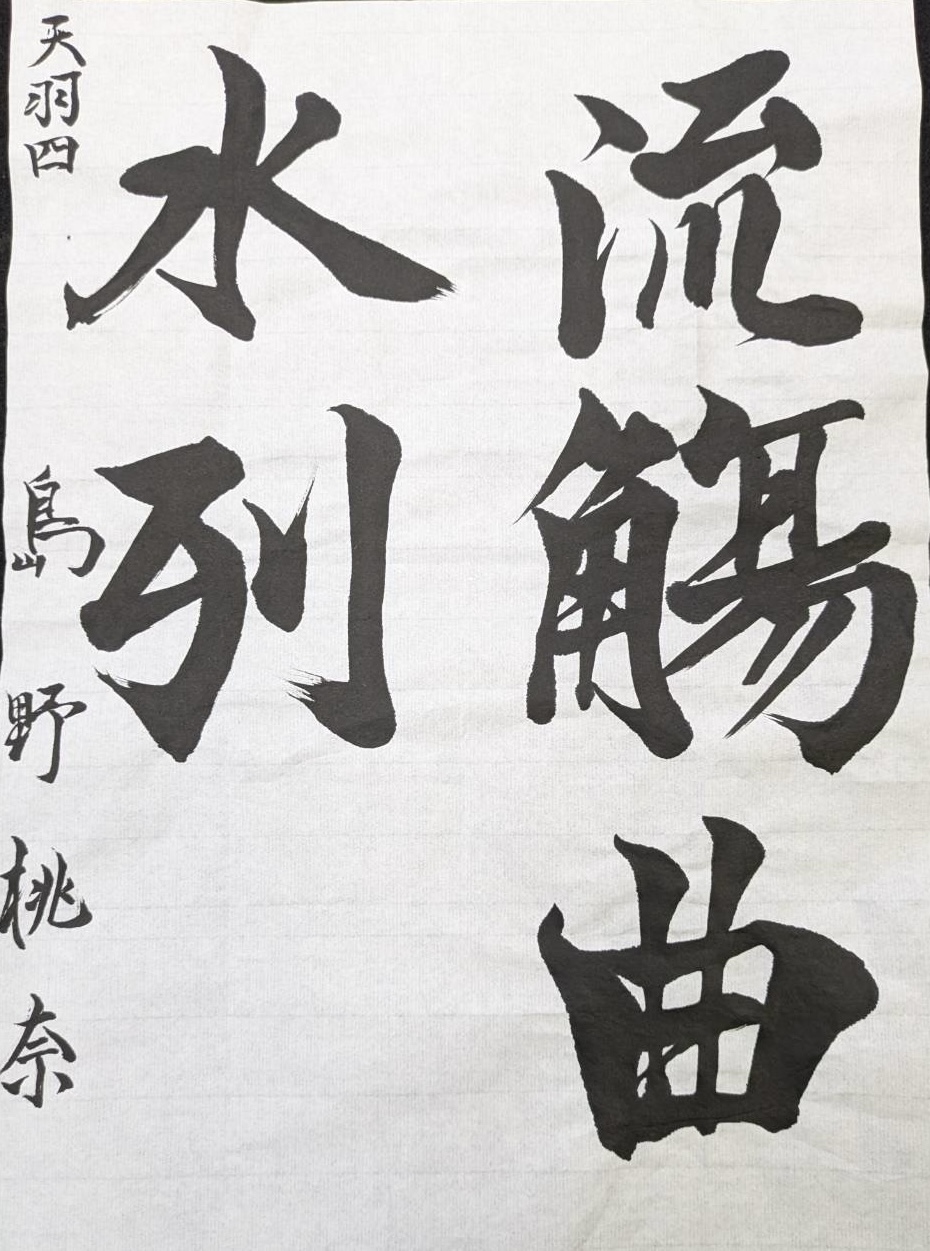 流觴曲
水列
天羽四 島野桃奈